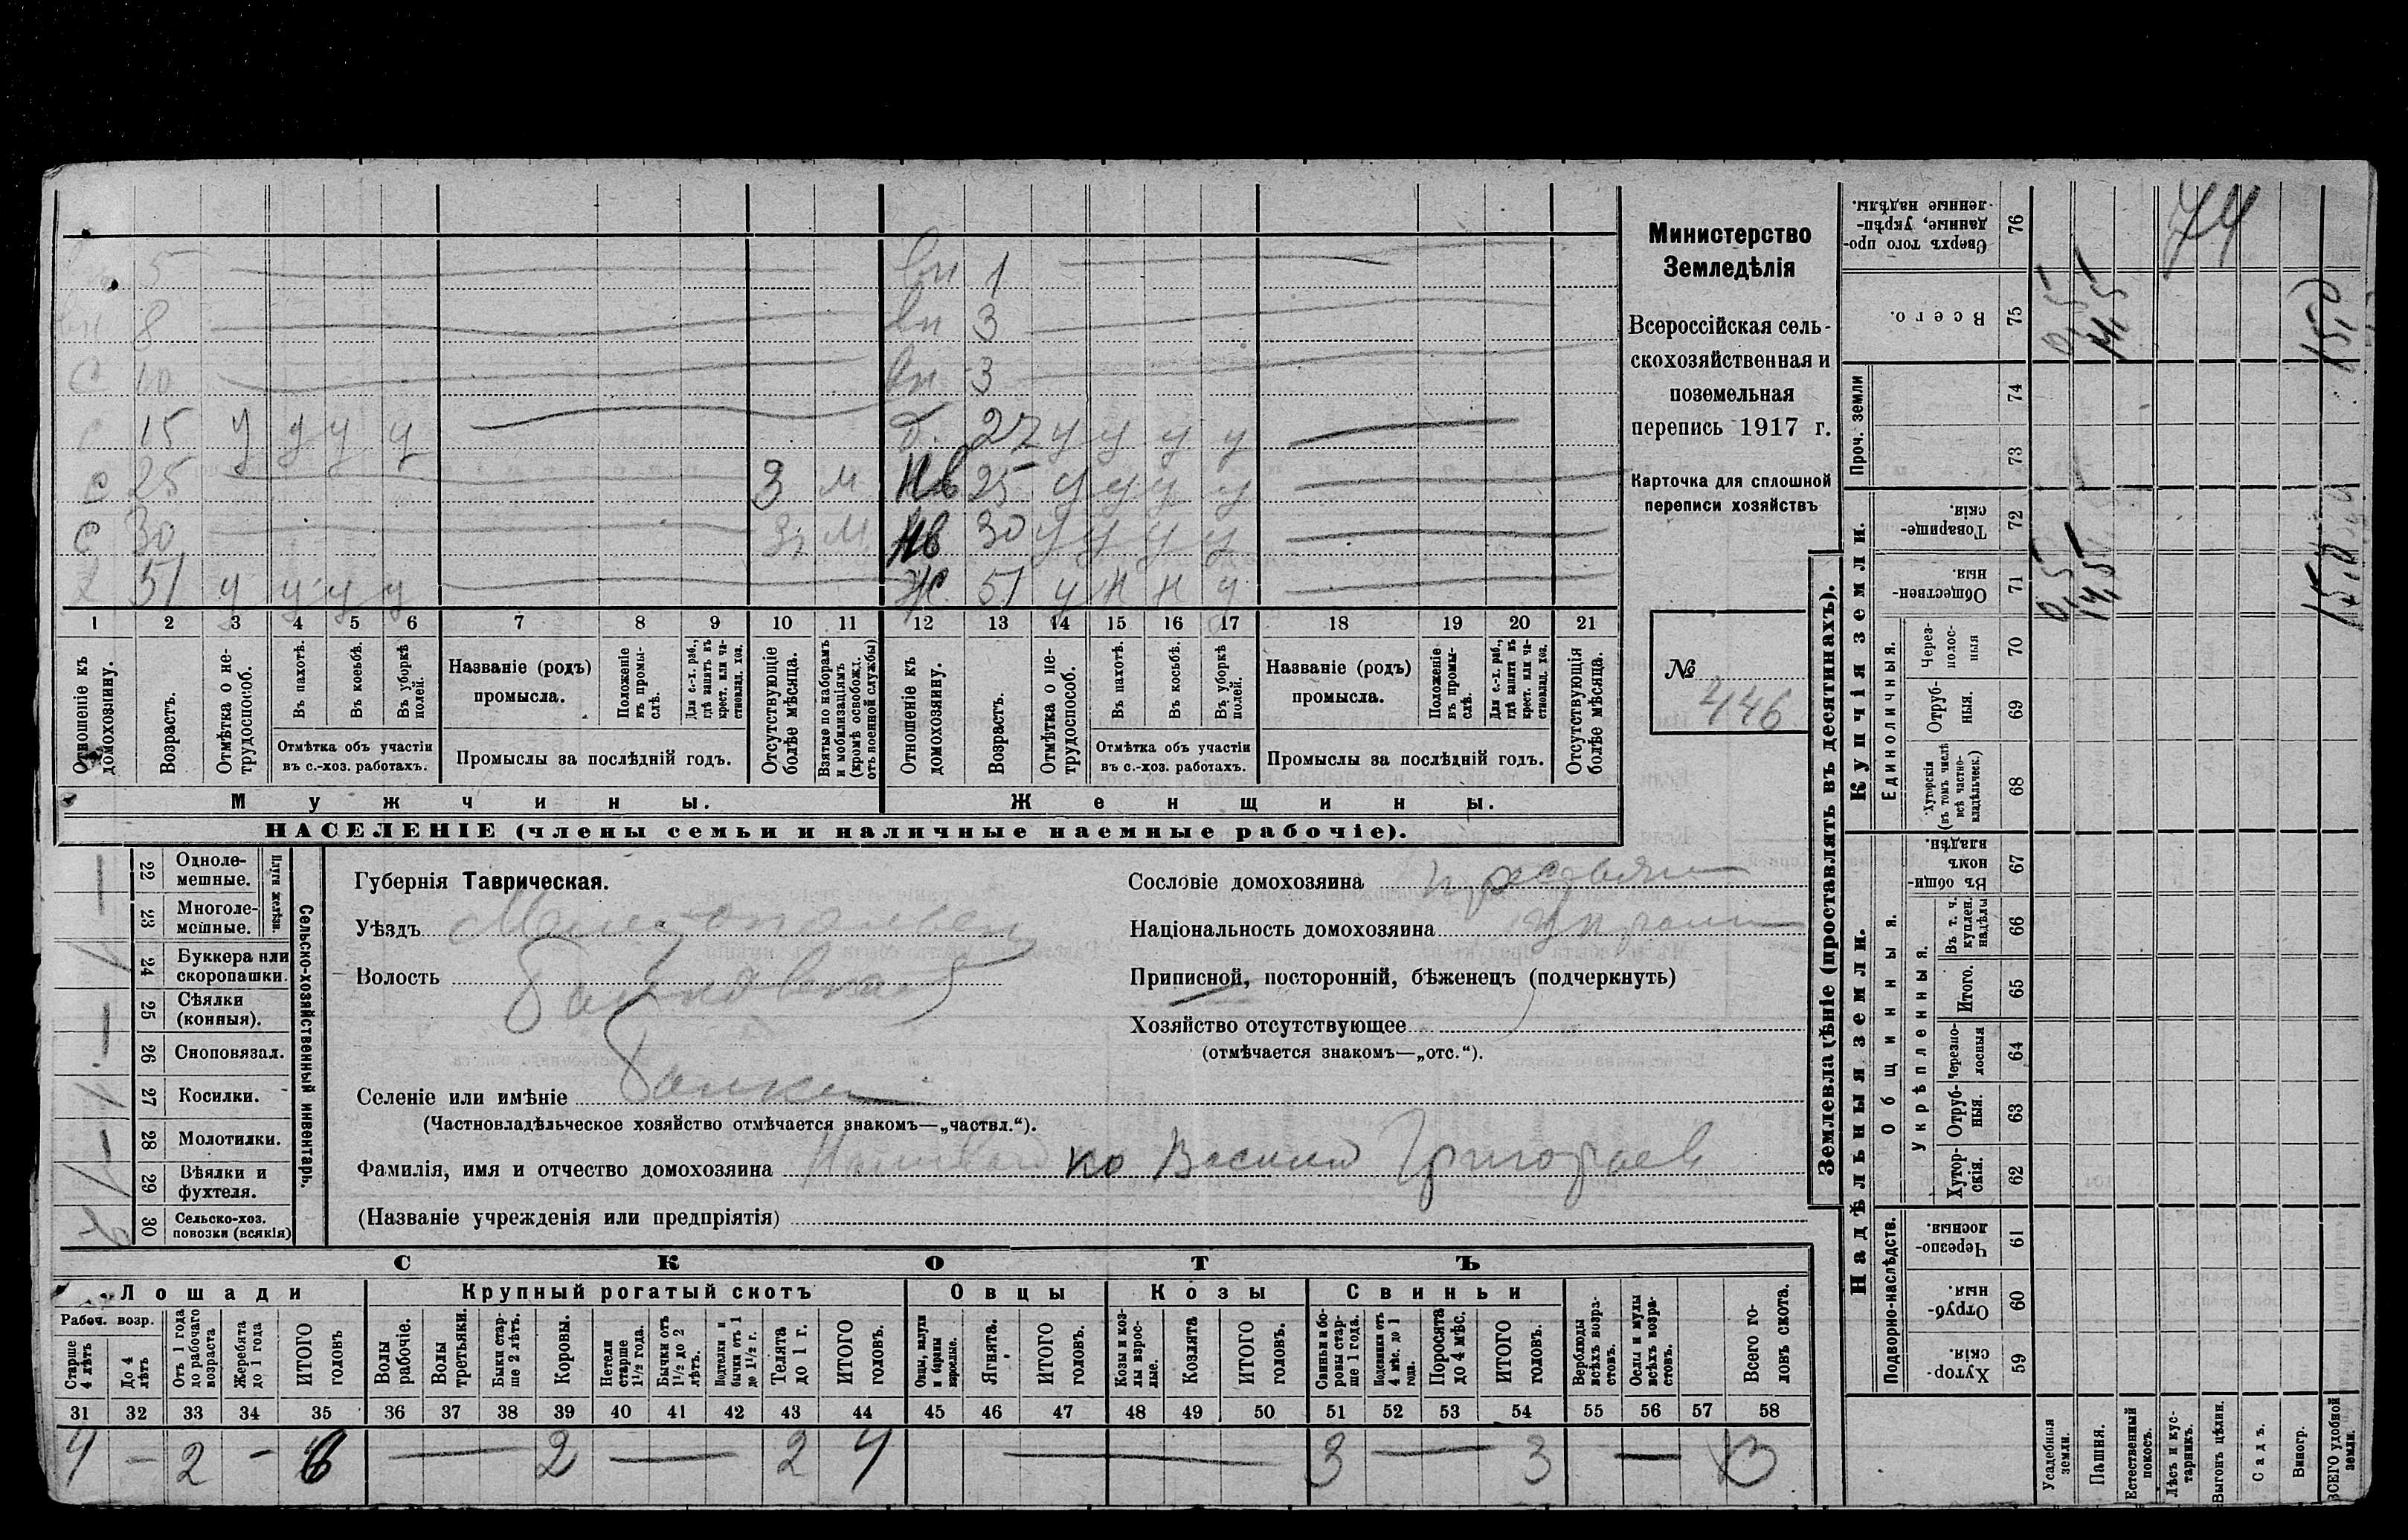 вн 5 вн 1
вн 8 вн 3
С 10 вн 3
С 15 у у у у д. 27 у у у у
С 25 3 м нв 25 у у у у
С 30 3 м нв 30 у у у у
Х 51 у у у у ж. 51 у н н у
1 2 3 4 5 6 7 8 9 10 11 12 13 14 15 16 17 18 19 20 21
Отношеніе къ домохозяину.
Возрастъ.
Отмѣтка о нетрудоспособ.
Въ пахотѣ.
Въ косьбѣ.
Въ уборкѣ полей.
Отмѣтка объ участіи въ с.-хоз. работахъ.
Названіе (родъ) промысла.
Положеніе въ промыслѣ.
Для с.-х. раб., гдѣ занятъ въ крест. или частновлад. хоз.
Промыслы за послѣдній годъ.
Отсутствующіе болѣе мѣсяца.
Взятые по наборамъ и мобилизаціямъ (кромѣ освобожд. отъ военной службы)
Отношеніе къ домохозяину.
Возрастъ.
Отмѣтка о нетрудоспособ.
Въ пахотѣ.
Въ косьбѣ.
Въ уборкѣ полей.
Отмѣтка объ участіи въ с.-хоз. работахъ.
Названіе (родъ) промысла.
Положеніе въ промыслѣ.
Для с.-х. раб., гдѣ занята въ крест. или частновлад. хоз.
Промыслы за послѣдній годъ.
Отсутствующія болѣе мѣсяца.
Мужчины. Женщины.
НАСЕЛЕНІЕ (члены семьи и наличные наемные рабочіе).
Министерство
Земледѣлія
Всероссійская сель-
скохозяйственная и
поземельная
перепись 1917 г.
Карточка для сплошной
переписи хозяйствъ
№ 446
Сельско-хозяйственный инвентарь.
Плуги желѣзн.
22 Одноле-мешные.
23 Многоле-мешные.
24 Буккера или скоропашки.
25 Сѣялки (конныя).
26 Сноповязал.
27 Косилки.
28 Молотилки.
29 Вѣялки и фухтеля.
30 Сельско-хоз. повозки (всякія)
Губернія Таврическая.
Уѣздъ Мелитопольск
Волость
Селеніе или имѣніе Балки
(Частновладѣльческое хозяйство отмѣчается знакомъ—„частвл.“).
Фамилія, имя и отчество домохозяина Василий Григорьев
(Названіе учрежденія или предпріятія)
Сословіе домохозяина крестьян
Національность домохозяина Украин
Приписной, посторонній, бѣженецъ (подчеркнуть)
Хозяйство отсутствующее
(отмѣчается знакомъ—„отс.“).
СКОТЪ
Лошади Крупный рогатый скотъ Овцы Козы Свиньи
Рабоч. возр.
Старше 4 лѣтъ
До 4 лѣтъ
Отъ 1 года до рабочаго возраста
Жеребята до 1 года
ИТОГО головъ
Волы рабочіе.
Волы третьяки.
Быки старше 2 лѣтъ.
Коровы.
Нетели старше 1 1/2 года.
Бычки отъ 1 1/2 до 2 лѣтъ.
Подтелки и бычки отъ 1 до 1 1/2 г.
Телята до 1 г.
ИТОГО головъ.
Овцы, валухи и бараны взрослые.
Ягнята.
ИТОГО головъ.
Козы и козлы взрослые.
Козлята
ИТОГО головъ.
Свиньи и боровы старше 1 года.
Подсвинки отъ 4 мѣс. до 1 года.
Поросята до 4 мѣс.
ИТОГО головъ.
Верблюды всѣхъ возрастовъ.
Ослы и мулы всѣхъ возрастовъ.
Всего головъ скота.
31 32 33 34 35 36 37 38 39 40 41 42 43 44 45 46 47 48 49 50 51 52 53 54 55 56 57 58
4 — 2 — 6 — 2 — 2 4 — 3 — 3 — 13
Землевладѣніе (проставлять въ десятинахъ).
Надѣльныя земли. Купчія земли. Проч. земли
Подворно-наслѣдств. Общинныя. Укрѣпленныя. Единоличныя.
76 Сверхъ того проданные, укрѣпленные надѣлы.
75 Всего. 0,5 14,5 15,0
74
73
72 Товарищескія.
71 Общественныя. 0,5 14,5 15,0
70 Черезполосныя
69 Отрубныя.
68 Хуторскія (въ томъ числѣ всѣ частновладѣльческ.)
67 Въ общинномъ владѣн.
66 Въ т. ч. куплен. надѣлы
65 Итого.
64 Черезполосныя
63 Отрубныя.
62 Хуторскія.
61 Черезполосныя.
60 Отрубныя.
59 Хуторскія.
Усадебныя земли.
Пашня.
Естественный покосъ.
Лѣсъ и кустарникъ.
Выгонъ цѣлин.
Садъ.
Виногр.
ВСЕГО удобной земли.
74